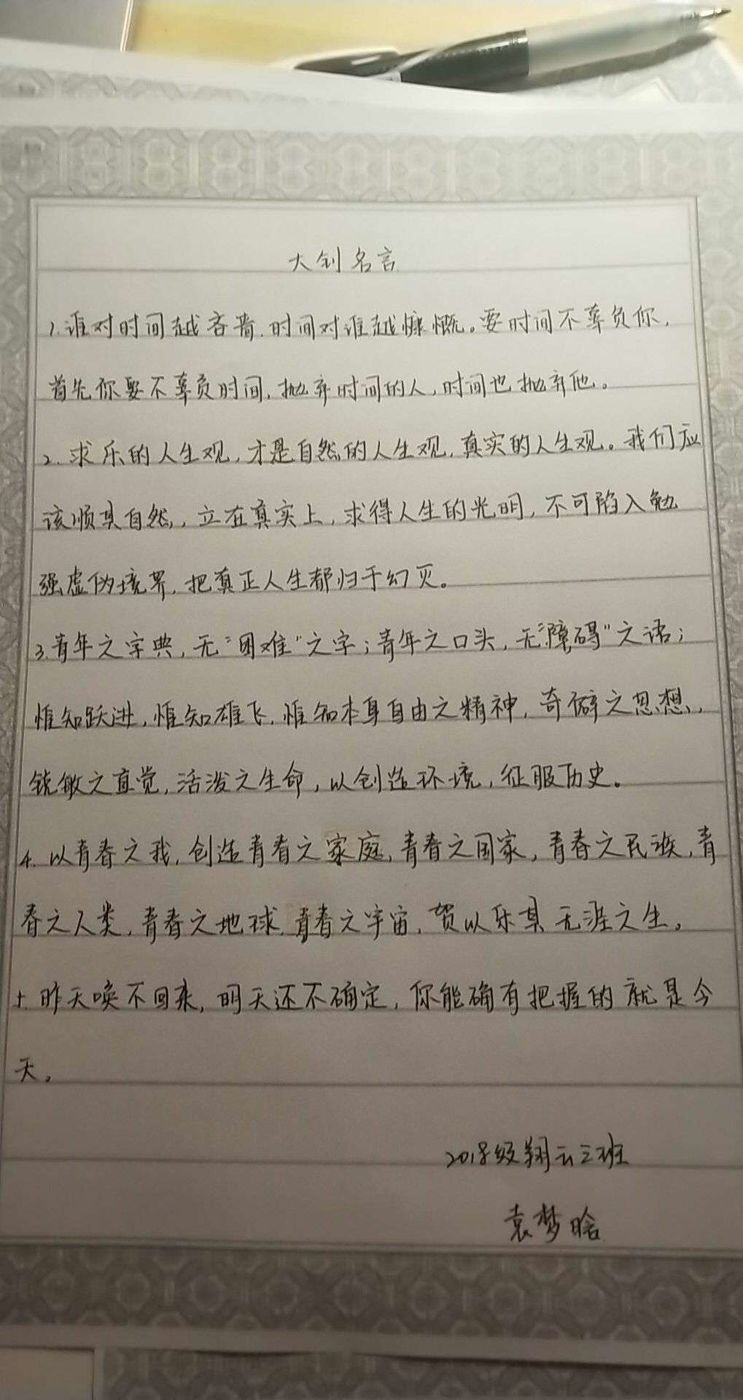 大钊名言
1.谁对时间越吝啬,时间对谁越慷慨。要时间不辜负你,
首先你要不辜负时间,抛弃时间的人,时间也抛弃他。
2.求乐的人生观,才是自然的人生观,真实的人生观。我们应
该顺其自然,立在真实上,求得人生的光明,不可陷入勉
强虚伪境界,把真正人生都归于幻灭。
3.青年之字典,无“困难”之字;青年之口头,无“障碍”之语;
惟知跃进,惟知雄飞,惟知本身自由之精神,奇僻之思想,
锐敏之直觉,活泼之生命,以创造环境,征服历史。
4.以青春之我,创造青春之家庭,青春之国家,青春之民族,青
春之人类,青春之地球,青春之宇宙,贺以乐其无涯之生。
5.昨天唤不回来,明天还不确定,你能确有把握的就是今
天。
2018级翔云三班
袁梦晗